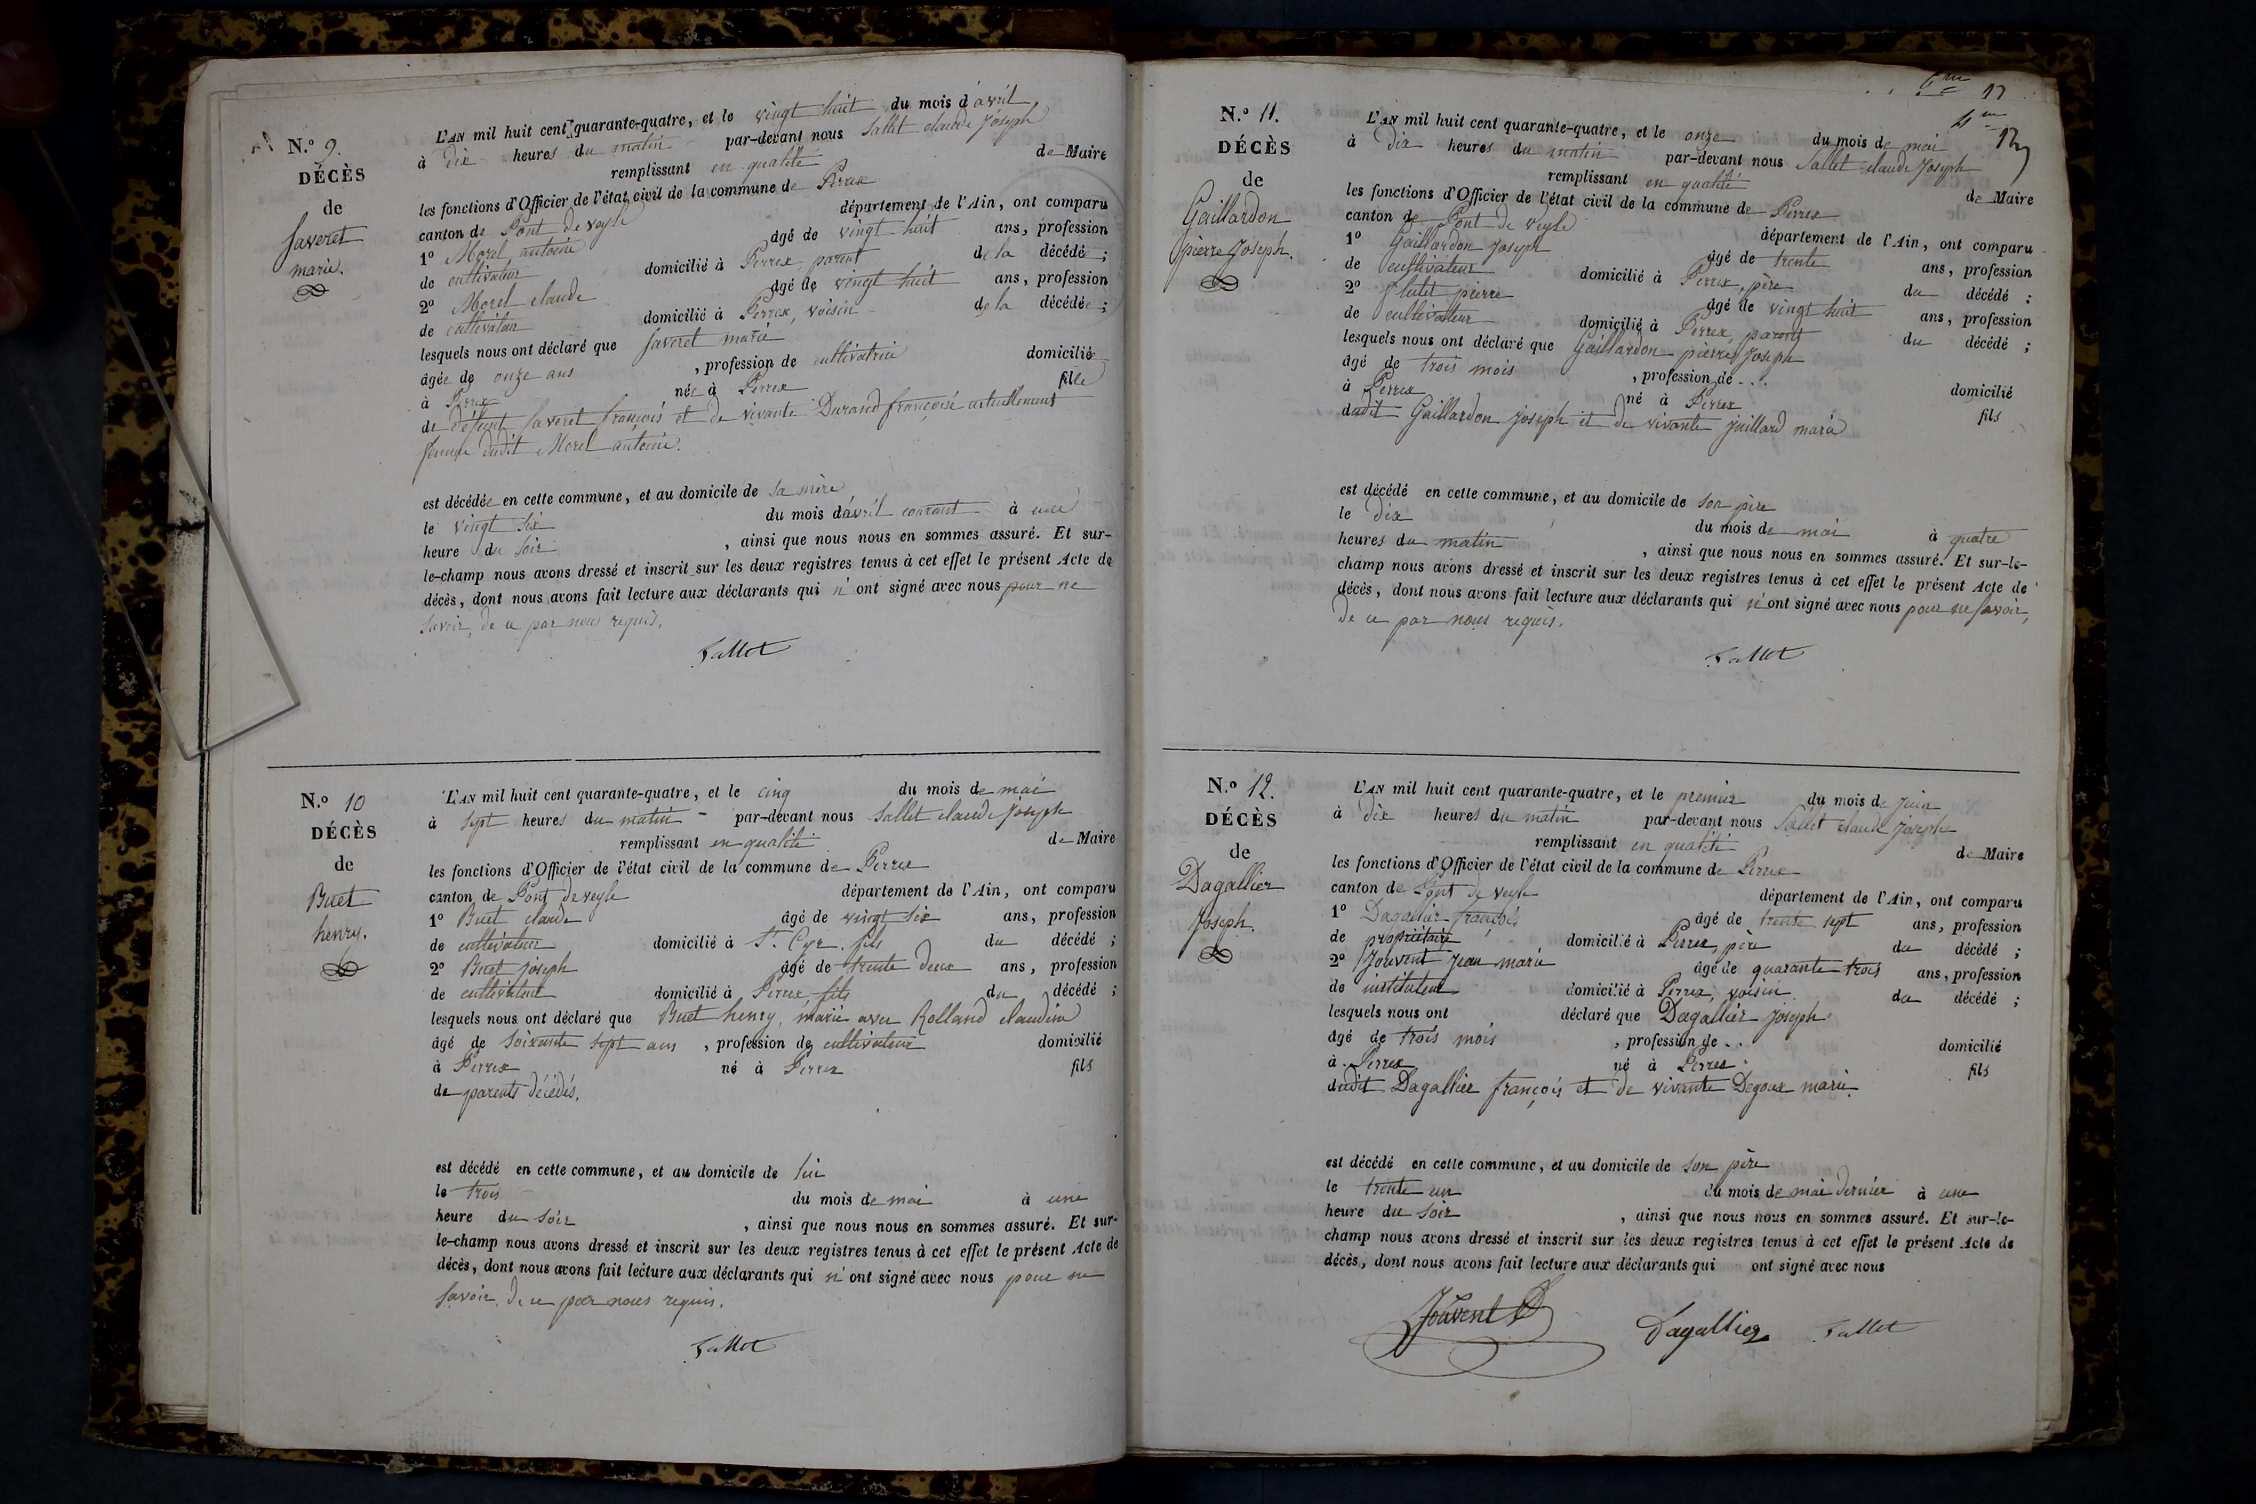 N.º 9.
DÉCÈS
de
Saveret
marie.
L'AN mil huit cent quarante-quatre, et le vingt huit du mois d'avril
à dix heures du matin par-devant nous Sallet claude Joseph
remplissant en qualité de Maire
les fonctions d'Officier de l'état civil de la commune de Perrex
canton de Pont de veyle département de l'Ain, ont comparu
1º Morel antoine âgé de vingt huit ans, profession
de cultivateur domicilié à Perrex, parent de la décédé ;
2º Morel claude âgé de vingt huit ans, profession
de cultivateur domicilié à Perrex, voisin de la décédée ;
lesquels nous ont déclaré que Saveret marie
âgée de onze ans , profession de cultivatrice domicilié
à Perrex née à Perrex fille
de défunt Saveret françois et de vivante Durand françoise actuellement
femme dudit Morel antoine.
est décédée en cette commune, et au domicile de sa mère
le vingt six du mois d'avril courant à une
heure du soir , ainsi que nous nous en sommes assuré. Et sur-
le-champ nous avons dressé et inscrit sur les deux registres tenus à cet effet le présent Acte de
décès, dont nous avons fait lecture aux déclarants qui n'ont signé avec nous pour ne
savoir, de ce par nous requis.
Sallet
N.º 10
DÉCÈS
de
Buet
henry.
L'AN mil huit cent quarante-quatre, et le cinq du mois de mai
à sept heures du matin - par-devant nous Sallet claude Joseph
remplissant en qualité de Maire
les fonctions d'Officier de l'état civil de la commune de Perrex
canton de Pont de veyle département de l'Ain, ont comparu
1º Buet claude âgé de vingt six ans, profession
de cultivateur domicilié à St. Cyr, fils du décédé ;
2º Buet joseph âgé de trente deux ans, profession
de cultivateur domicilié à Perrex, fils du décédé ;
lesquels nous ont déclaré que Buet henry, marié avec Rolland claudine
âgé de soixante sept ans , profession de cultivateur domicilié
à Perrex né à Perrex fils
de parents décédés.
est décédé en cette commune, et au domicile de lui
le trois du mois de mai à une
heure du soir , ainsi que nous nous en sommes assuré. Et sur-
le-champ nous avons dressé et inscrit sur les deux registres tenus à cet effet le présent Acte de
décès, dont nous avons fait lecture aux déclarants qui n'ont signé avec nous pour ne
savoir, de ce par nous requis.
Sallet
N.º 11.
DÉCÈS
de
Gaillardon
pierre Joseph.
L'AN mil huit cent quarante-quatre, et le onze du mois de mai
à dix heures du matin par-devant nous Sallet claude Joseph
remplissant en qualité de Maire
les fonctions d'Officier de l'état civil de la commune de Perrex
canton de Pont de veyle département de l'Ain, ont comparu
1º Gaillardon Joseph âgé de trente ans, profession
de cultivateur domicilié à Perrex, père du décédé ;
2º pierre âgé de vingt huit ans, profession
de cultivateur domicilié à Perrex, parent du décédé ;
lesquels nous ont déclaré que Gaillardon pierre Joseph
âgé de trois mois , profession de . . . domicilié
à Perrex né à Perrex fils
dudit Gaillardon Joseph et de vivante Juillard maria
est décédé en cette commune, et au domicile de son père
le dix du mois de mai à quatre
heures du matin , ainsi que nous nous en sommes assuré. Et sur-le-
champ nous avons dressé et inscrit sur les deux registres tenus à cet effet le présent Acte de
décès, dont nous avons fait lecture aux déclarants qui n'ont signé avec nous pour ne savoir,
de ce par nous requis.
Sallet
N.º 12.
DÉCÈS
de
Dagallier
Joseph.
L'AN mil huit cent quarante-quatre, et le premier du mois de juin
à dix heures du matin par-devant nous Sallet claude Joseph
remplissant en qualité de Maire
les fonctions d'Officier de l'état civil de la commune de Perrex
canton de Pont de veyle département de l'Ain, ont comparu
1º Dagallier françois âgé de trente sept ans, profession
de propriétaire domicilié à Perrex, père du décédé ;
2º Jouvent Jean marie âgé de quarante trois ans, profession
de instituteur domicilié à Perrex, voisin du décédé ;
lesquels nous ont déclaré que Dagallier Joseph
âgé de trois mois , profession de . . domicilié
à Perrex né à Perrex fils
dudit Dagallier françois et de vivante Degoux marie.
est décédé en cette commune, et au domicile de son père
le trente un du mois de mai dernier à une
heure du soir , ainsi que nous nous en sommes assuré. Et sur-le-
champ nous avons dressé et inscrit sur les deux registres tenus à cet effet le présent Acte de
décès, dont nous avons fait lecture aux déclarants qui ont signé avec nous
Jouvent Dagallier Sallet